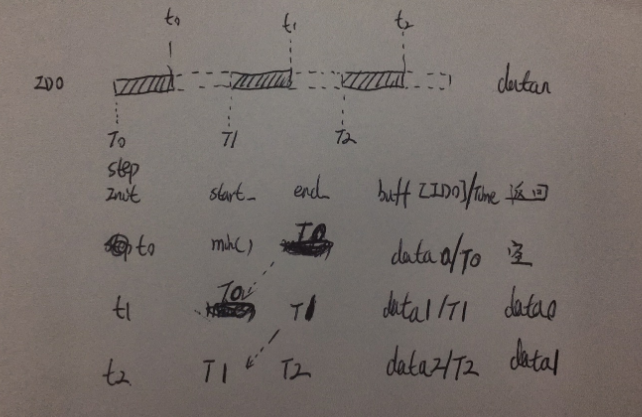 t0 t1 t2
ID0 datan
T0 T1 T2
step
Init start_ end_ buff [ID0]/Time 返回
t0 min() T0 data0/T0 空
t1 T0 T1 data1/T1 data0
t2 T1 T2 data2/T2 data1